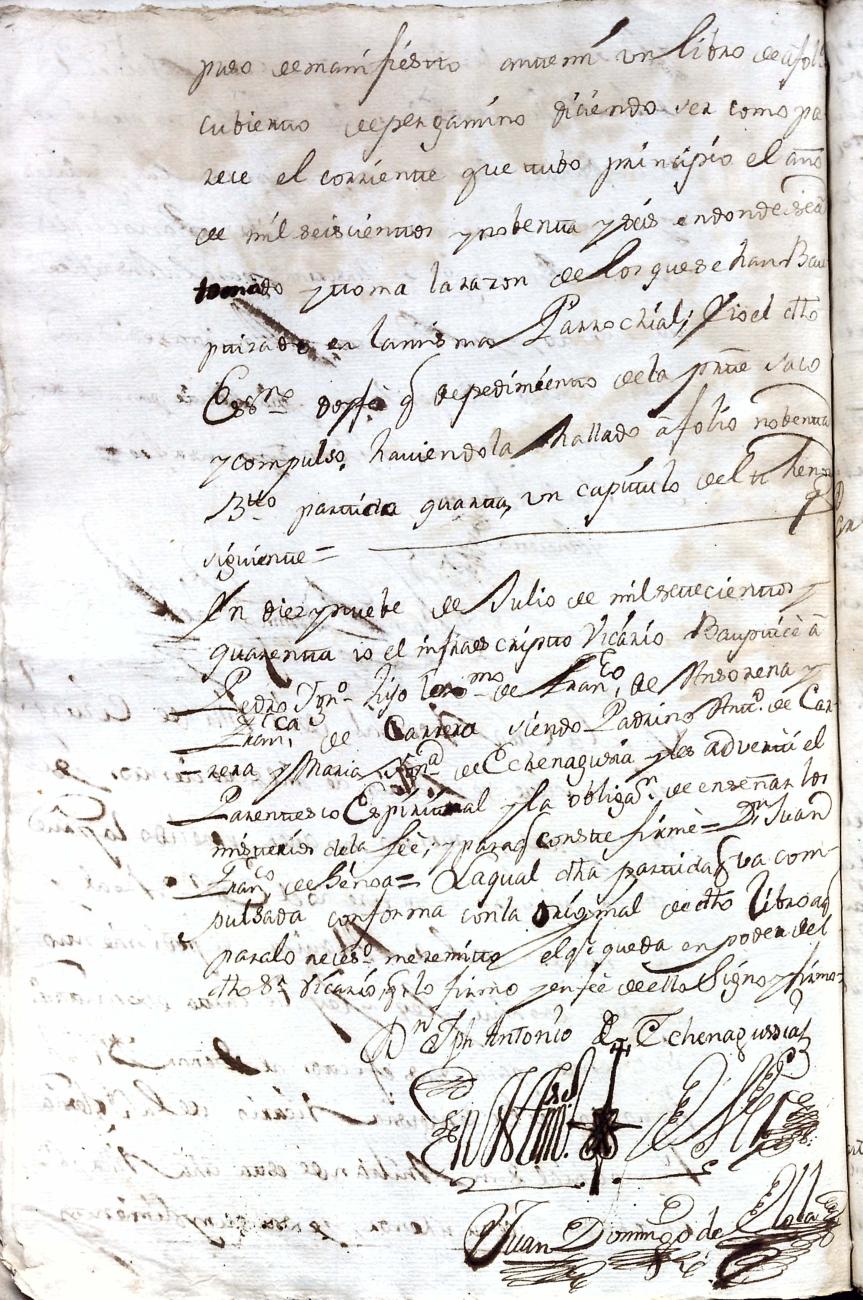 puso de manifiesto ante mi un libro de a fol
cubierto de pergamino diciendo ser como pa
rece el corriente que tubo principio el año
de mil seiscientos y nobenta y seis en donde se a
tomado y toma la razon de los que se han Bau
ptizado en la misma Parrochial; Yo el dho
Essno. doy fe q de pedimiento de la pnte saco
y compulso, haviendola hallado a folio nobenta
Bto partida quarta, un capitulo del thenor
siguiente =
En diez y nuebe de Julio de mil setecientos y
quarenta io el infraescripto Vicario Bauptice à
Pedro Igno. Hijo lexmo. de Franco. de Ansorena y
Franca. de Carrera siendo Padrino Anto. de Car-
rera y Maria de Echenagusia y les adverti el
Parentesco Espiritual y la obligan. de enseñar los
misterios de la feè; y para q conste firmè = Dn. Juan
Franco. de Henoa = La qual dha partida q va com-
pulsada conforma con la original de dho libro aq
para lo neceso. me remitto el q queda en poder del
dho Sr. Vicario q lo firmo y en feè de ello Signo y firmo =
Dn. Jph Antonio de Echenagussia
En testimo. de Verd
Juan Domingo de